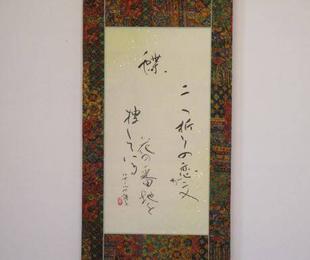 蝶
二つ折りの恋文
花の番地を
捜している